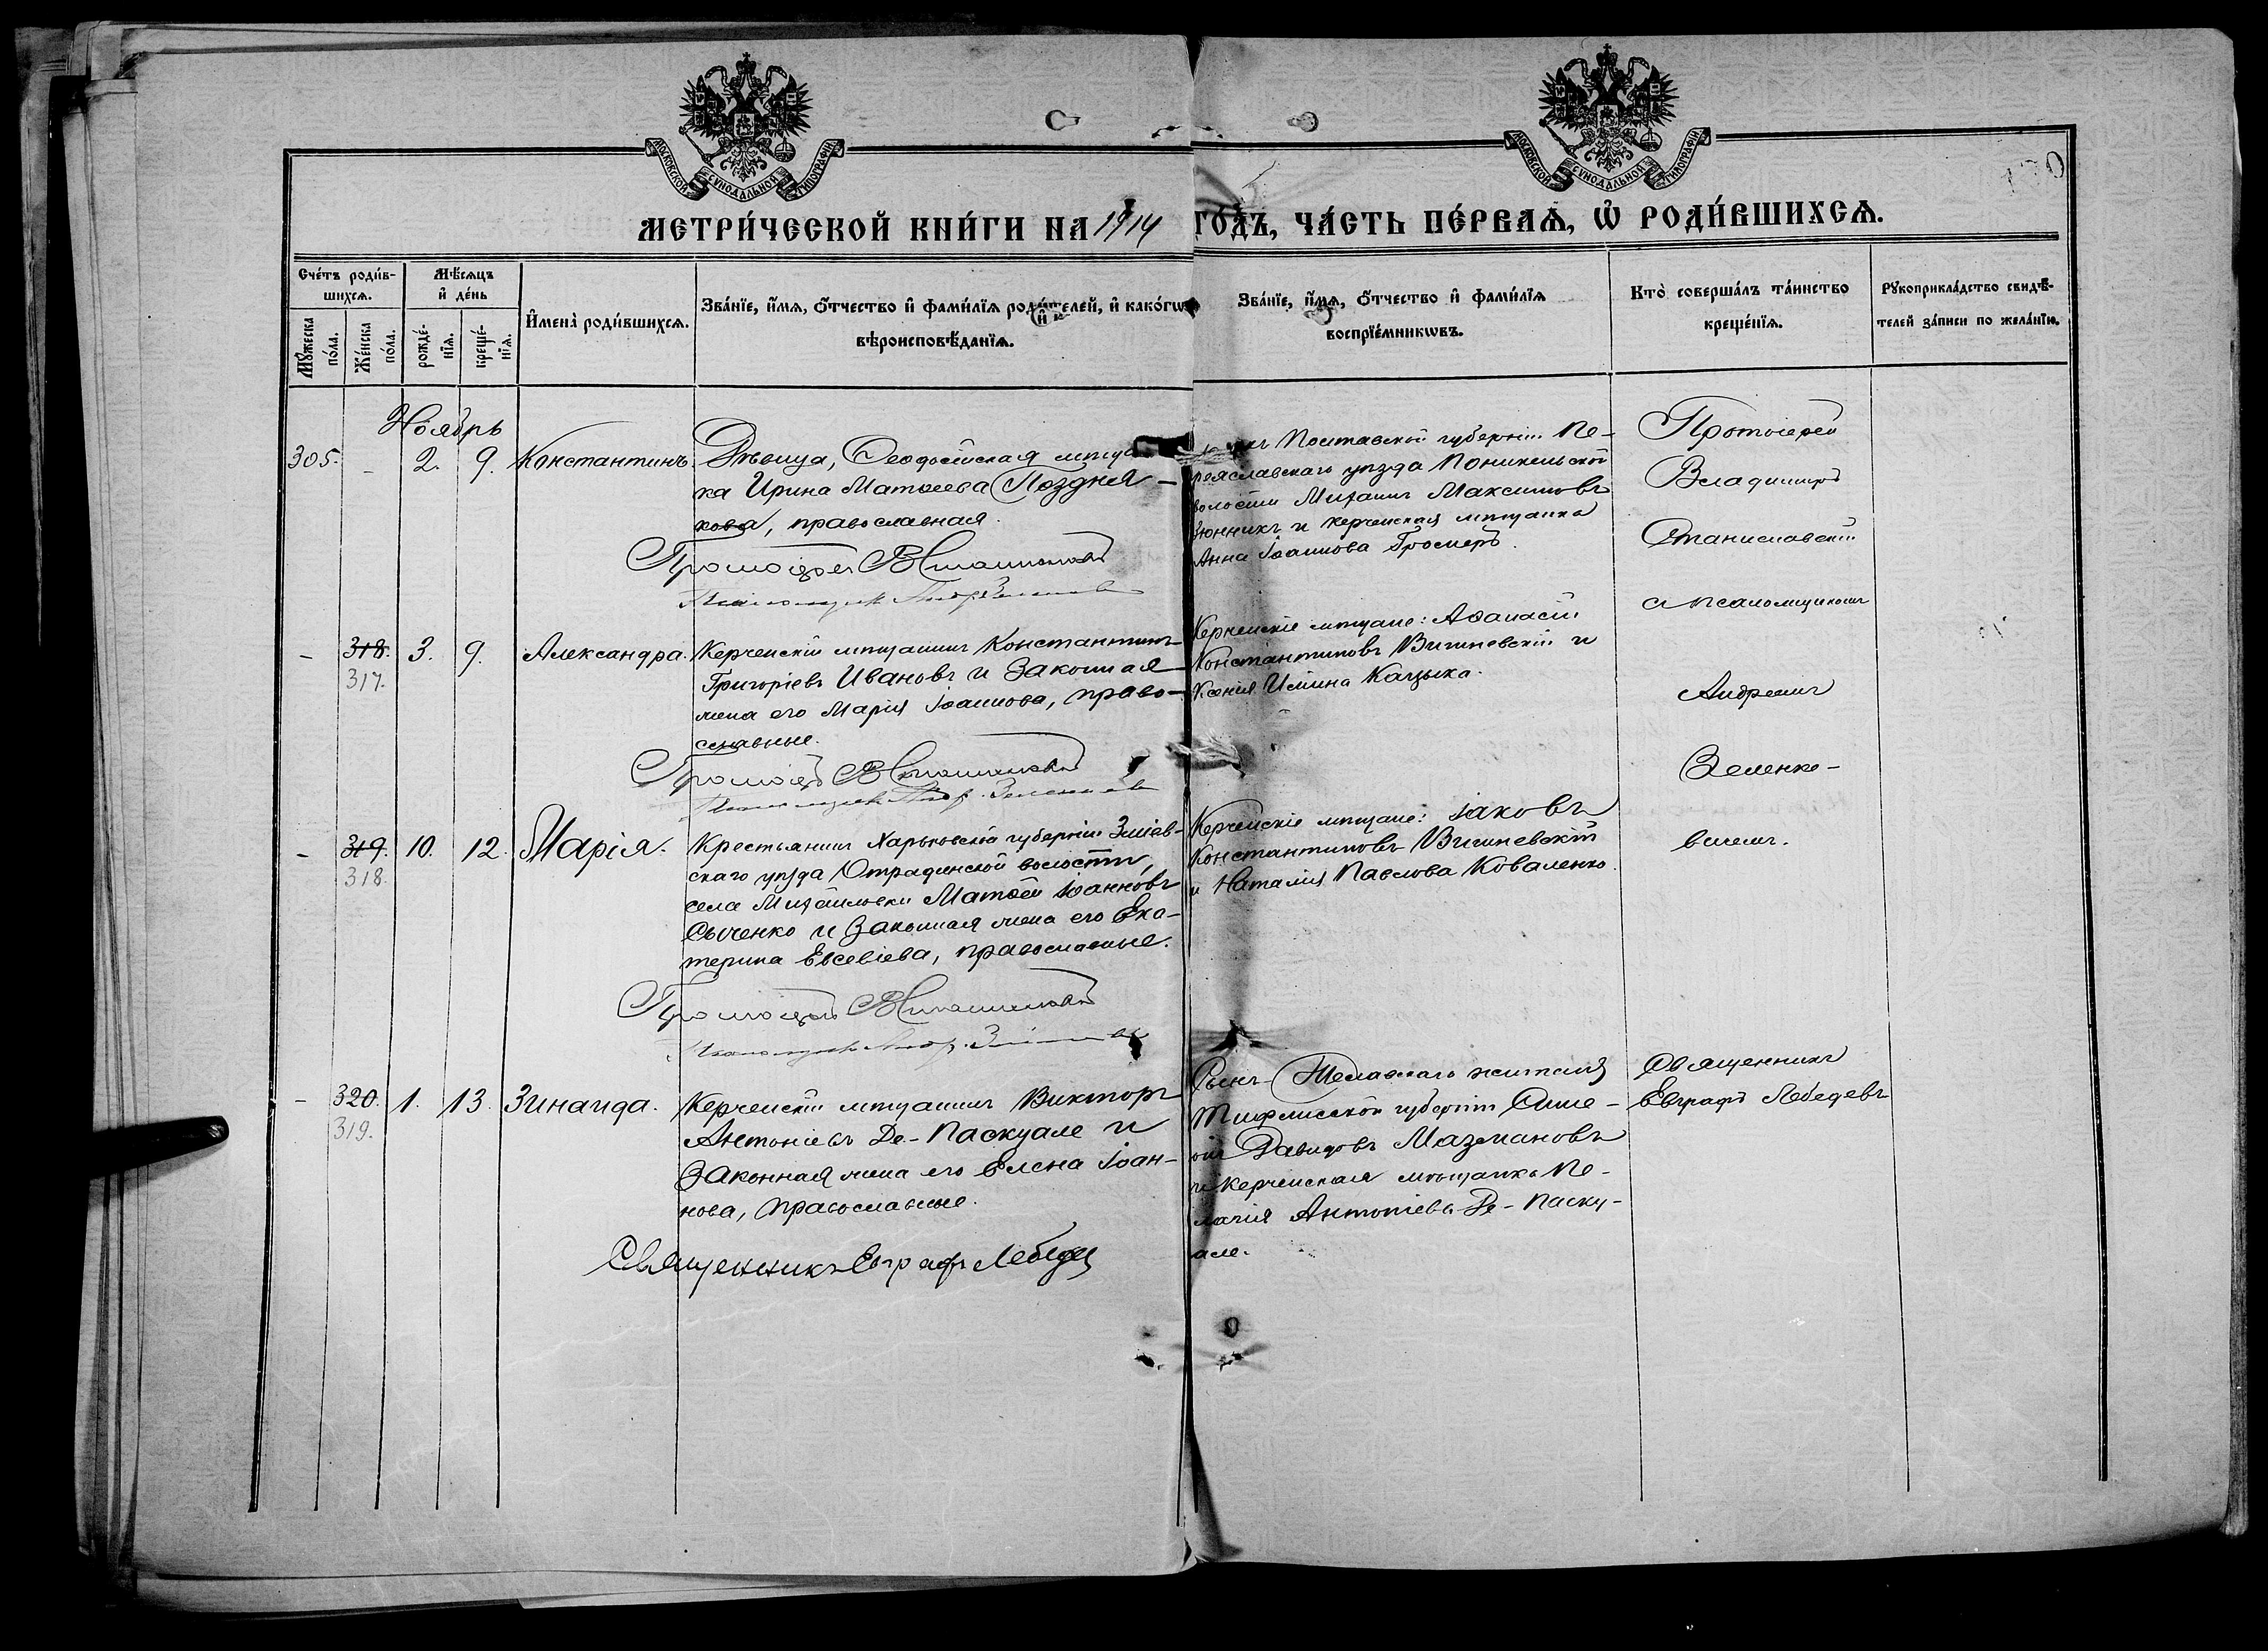 МОСКОВСКОЙ СУНОДАЛЬНОЙ ТИПОГРАФІИ
МОСКОВСКОЙ СУНОДАЛЬНОЙ ТИПОГРАФІИ
МЕТРИ́ЧЕСКОЙ КНИ́ГИ НА 1914 ГО́ДЪ, ЧА́СТЬ ПЕ́РВАѦ, Ѡ҆ РОДИ́ВШИХСѦ.
Сче́тъ роди́в-
шихсѧ.
Мѣ́сѧцъ
и҆ де́нь
Мꙋ́жеска
по́ла.
Же́нска
по́ла.
рожде́-
нїѧ.
креще́-
нїѧ.
И҆мена̀ роди́вшихсѧ.
Зва́нїе, и҆́мѧ, ѻ҆́тчество и҆ фами́лїѧ роди́телей, и҆ како́гѡ
вѣроисповѣ́данїѧ.
Зва́нїе, и҆́мѧ, ѻ҆́тчество и҆ фами́лїѧ
воспрїе́мникѡвъ.
Кто̀ соверша́лъ та́инство
креще́нїѧ.
Рꙋкоприкла́дство свидѣ́-
телей за́писи по жела́нїю.
Ноябрь
305. - 2. 9. Константинъ.
Дѣвица, Ѳеодосійская мѣщан
ка Ирина Матѳеева Поздня-
кова, православная.
Протоіерей В Станиславскій
Полтавской губерніи Пе-
реяславскаго уѣзда
волости Михаилъ Максимовъ
и керченская мѣщанка
Анна Іоаннова
Протоіерей
Владиміръ
Станиславскій
съ псаломщикомъ
Андреемъ
Зеленке-
вичемъ.
- 318. 3. 9. Александра.
317.
Керченскій мѣщанинъ Константинъ
Григоріевъ Ивановъ и законная
жена его Марія Іоаннова, право-
славные.
Протоіерей В Станиславскій
Керченскіе мѣщане: Аѳанасій
Константиновъ Вишневскій и
Ксенія
- 319. 10. 12. Марія.
318.
Крестьянинъ Харьковской губерніи Зміев-
скаго уѣзда Отрадинской волости,
села Михайловки Матѳей Іоанновъ
Сыченко и законная жена его Ека-
терина Евсевіева, православные.
Протоіерей В Станиславскій
Керченскіе мѣщане: Іаковъ
Константиновъ Вишневскій
и Наталія Павлова Коваленко.
- 320. 1. 13. Зинаида.
319.
Керченскій мѣщанинъ Викторъ
Антоніевъ Де-Паскуале и
законная жена его Елена Іоан-
нова, православные.
Священникъ Евграфъ Лебедевъ
Сынъ Телавскаго жителя
Тифлисской губерніи Симе-
онъ Давидовъ Мазмановъ
и керченская мѣщанка Пе-
лагія Антоніева Де-Паску-
але.
Священникъ
Евграфъ Лебедевъ